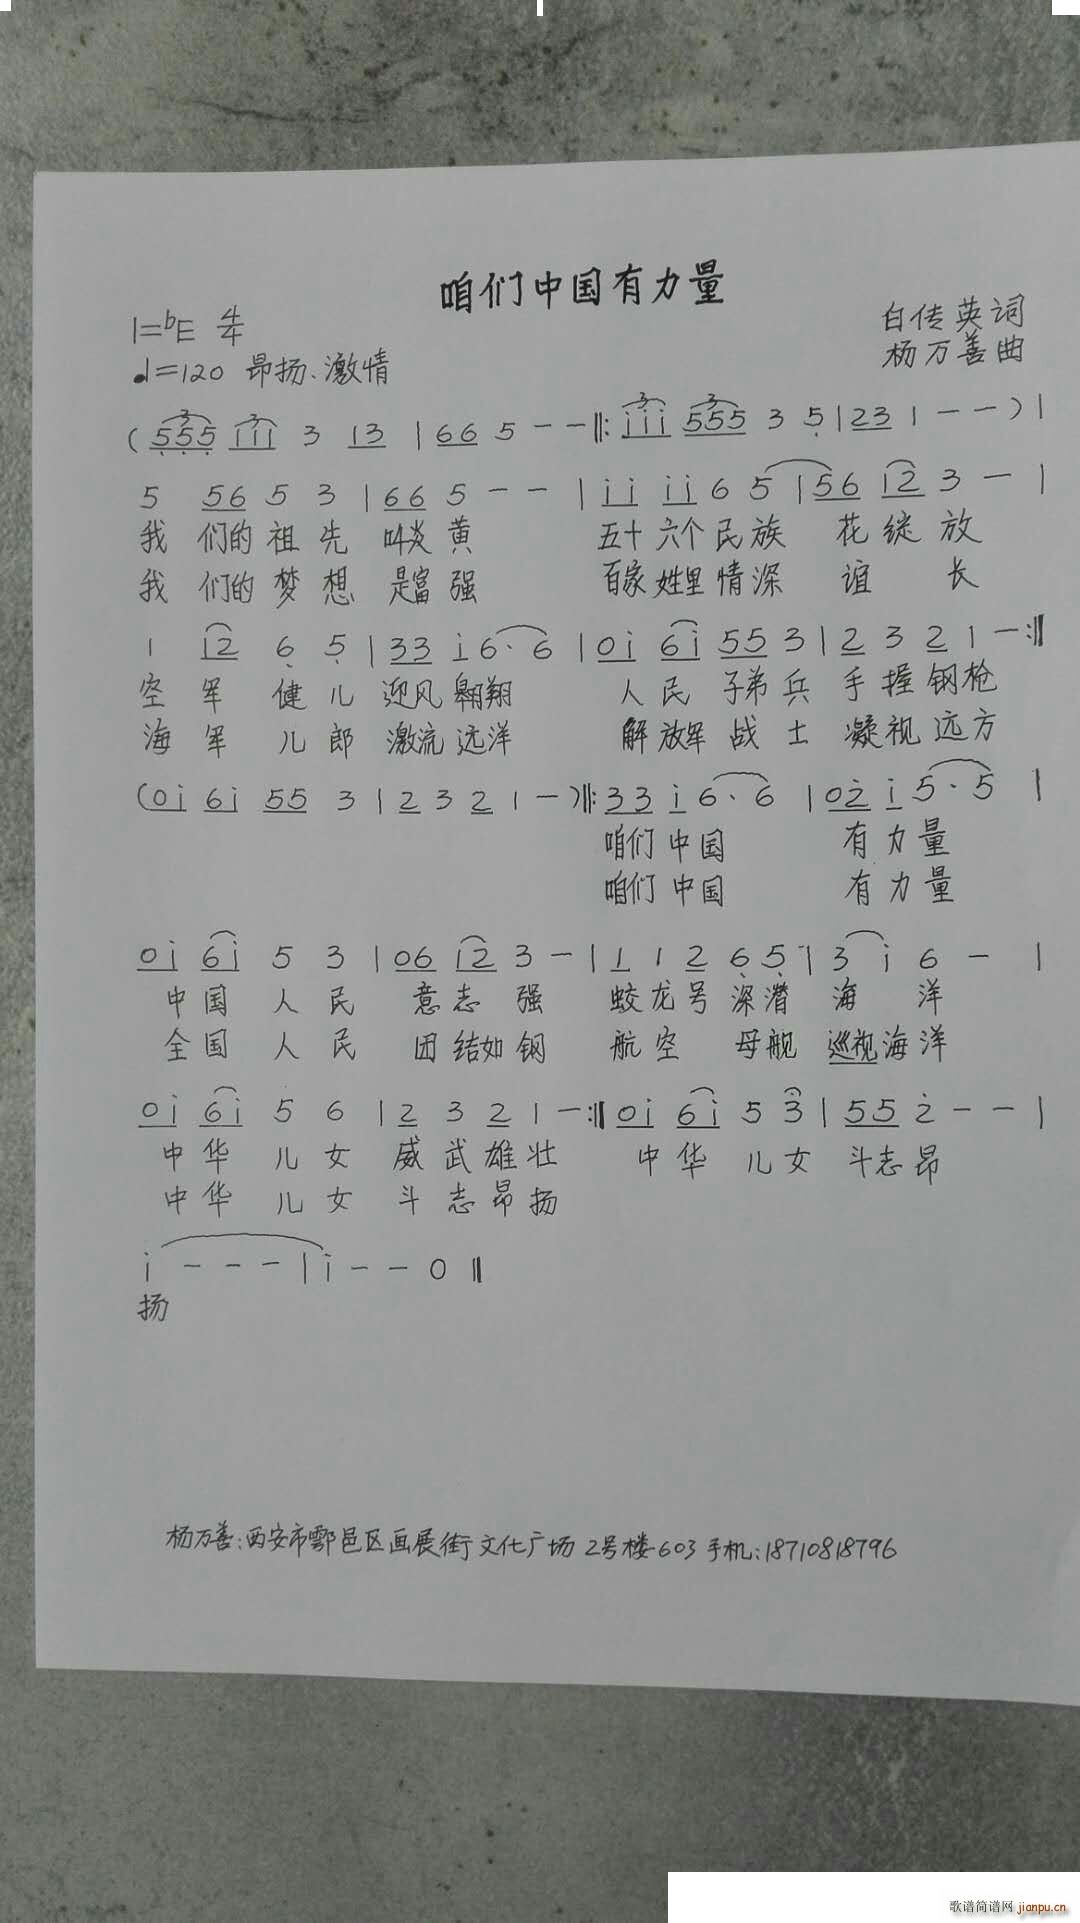 咱们中国有力量
1=bE 4/4
白传英词
♩=120 昂扬、激情
杨万善曲
(555 iii 3 13 | 66 5 - - ‖: iii 555 3 5 | 23 1 - - ) |
5 56 5 3 | 66 5 - - | ii ii 6 5 | 56 i2 3 - |
我们的祖先 叫炎黄 五十六个民族 花绽放
我们的梦想 是富强 百家姓里情深 谊长
1 i2 6 5 | 33 i 6· 6 | 0i 6i 55 3 | 2 3 2 1 - :‖
空军健儿 迎风翱翔 人民子弟兵 手握钢枪
海军儿郎 激流远洋 解放军战士 凝视远方
(0i 6i 55 3 | 2 3 2 1 - ) ‖: 33 i 6· 6 | 02 i 5· 5 |
咱们中国 有力量
咱们中国 有力量
0i 6i 5 3 | 06 i2 3 - | 1 1 2 6 5 | 3 i 6 - |
中国人民 意志强 蛟龙号深潜 海洋
全国人民 团结如钢 航空母舰 巡视海洋
0i 6i 5 6 | 2 3 2 1 - :‖ 0i 6i 5 3 | 55 2 - - |
中华儿女 威武雄壮 中华儿女 斗志昂
中华儿女 斗志昂扬
i - - - | i - - 0 ‖
扬
杨万善:西安市鄠邑区画展街文化广场2号楼603手机:18710818796
歌谱简谱网 jianpu.cn